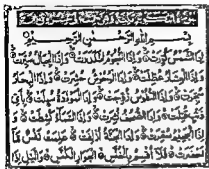 بسم الله الرحمن الرحيم
إذا الشمس كورت وإذا النجوم انكدرت وإذا الجبال سيرت
وإذا العشار عطلت وإذا الوحوش حشرت وإذا البحار
سجرت وإذا النفوس زوجت وإذا الموءودة سئلت بأي
ذنب قتلت وإذا الصحف نشرت وإذا السماء كشطت وإذا
الجحيم سعرت وإذا الجنة أزلفت علمت نفس ما
أحضرت فلا أقسم بالخنس الجوار الكنس والليل إذا